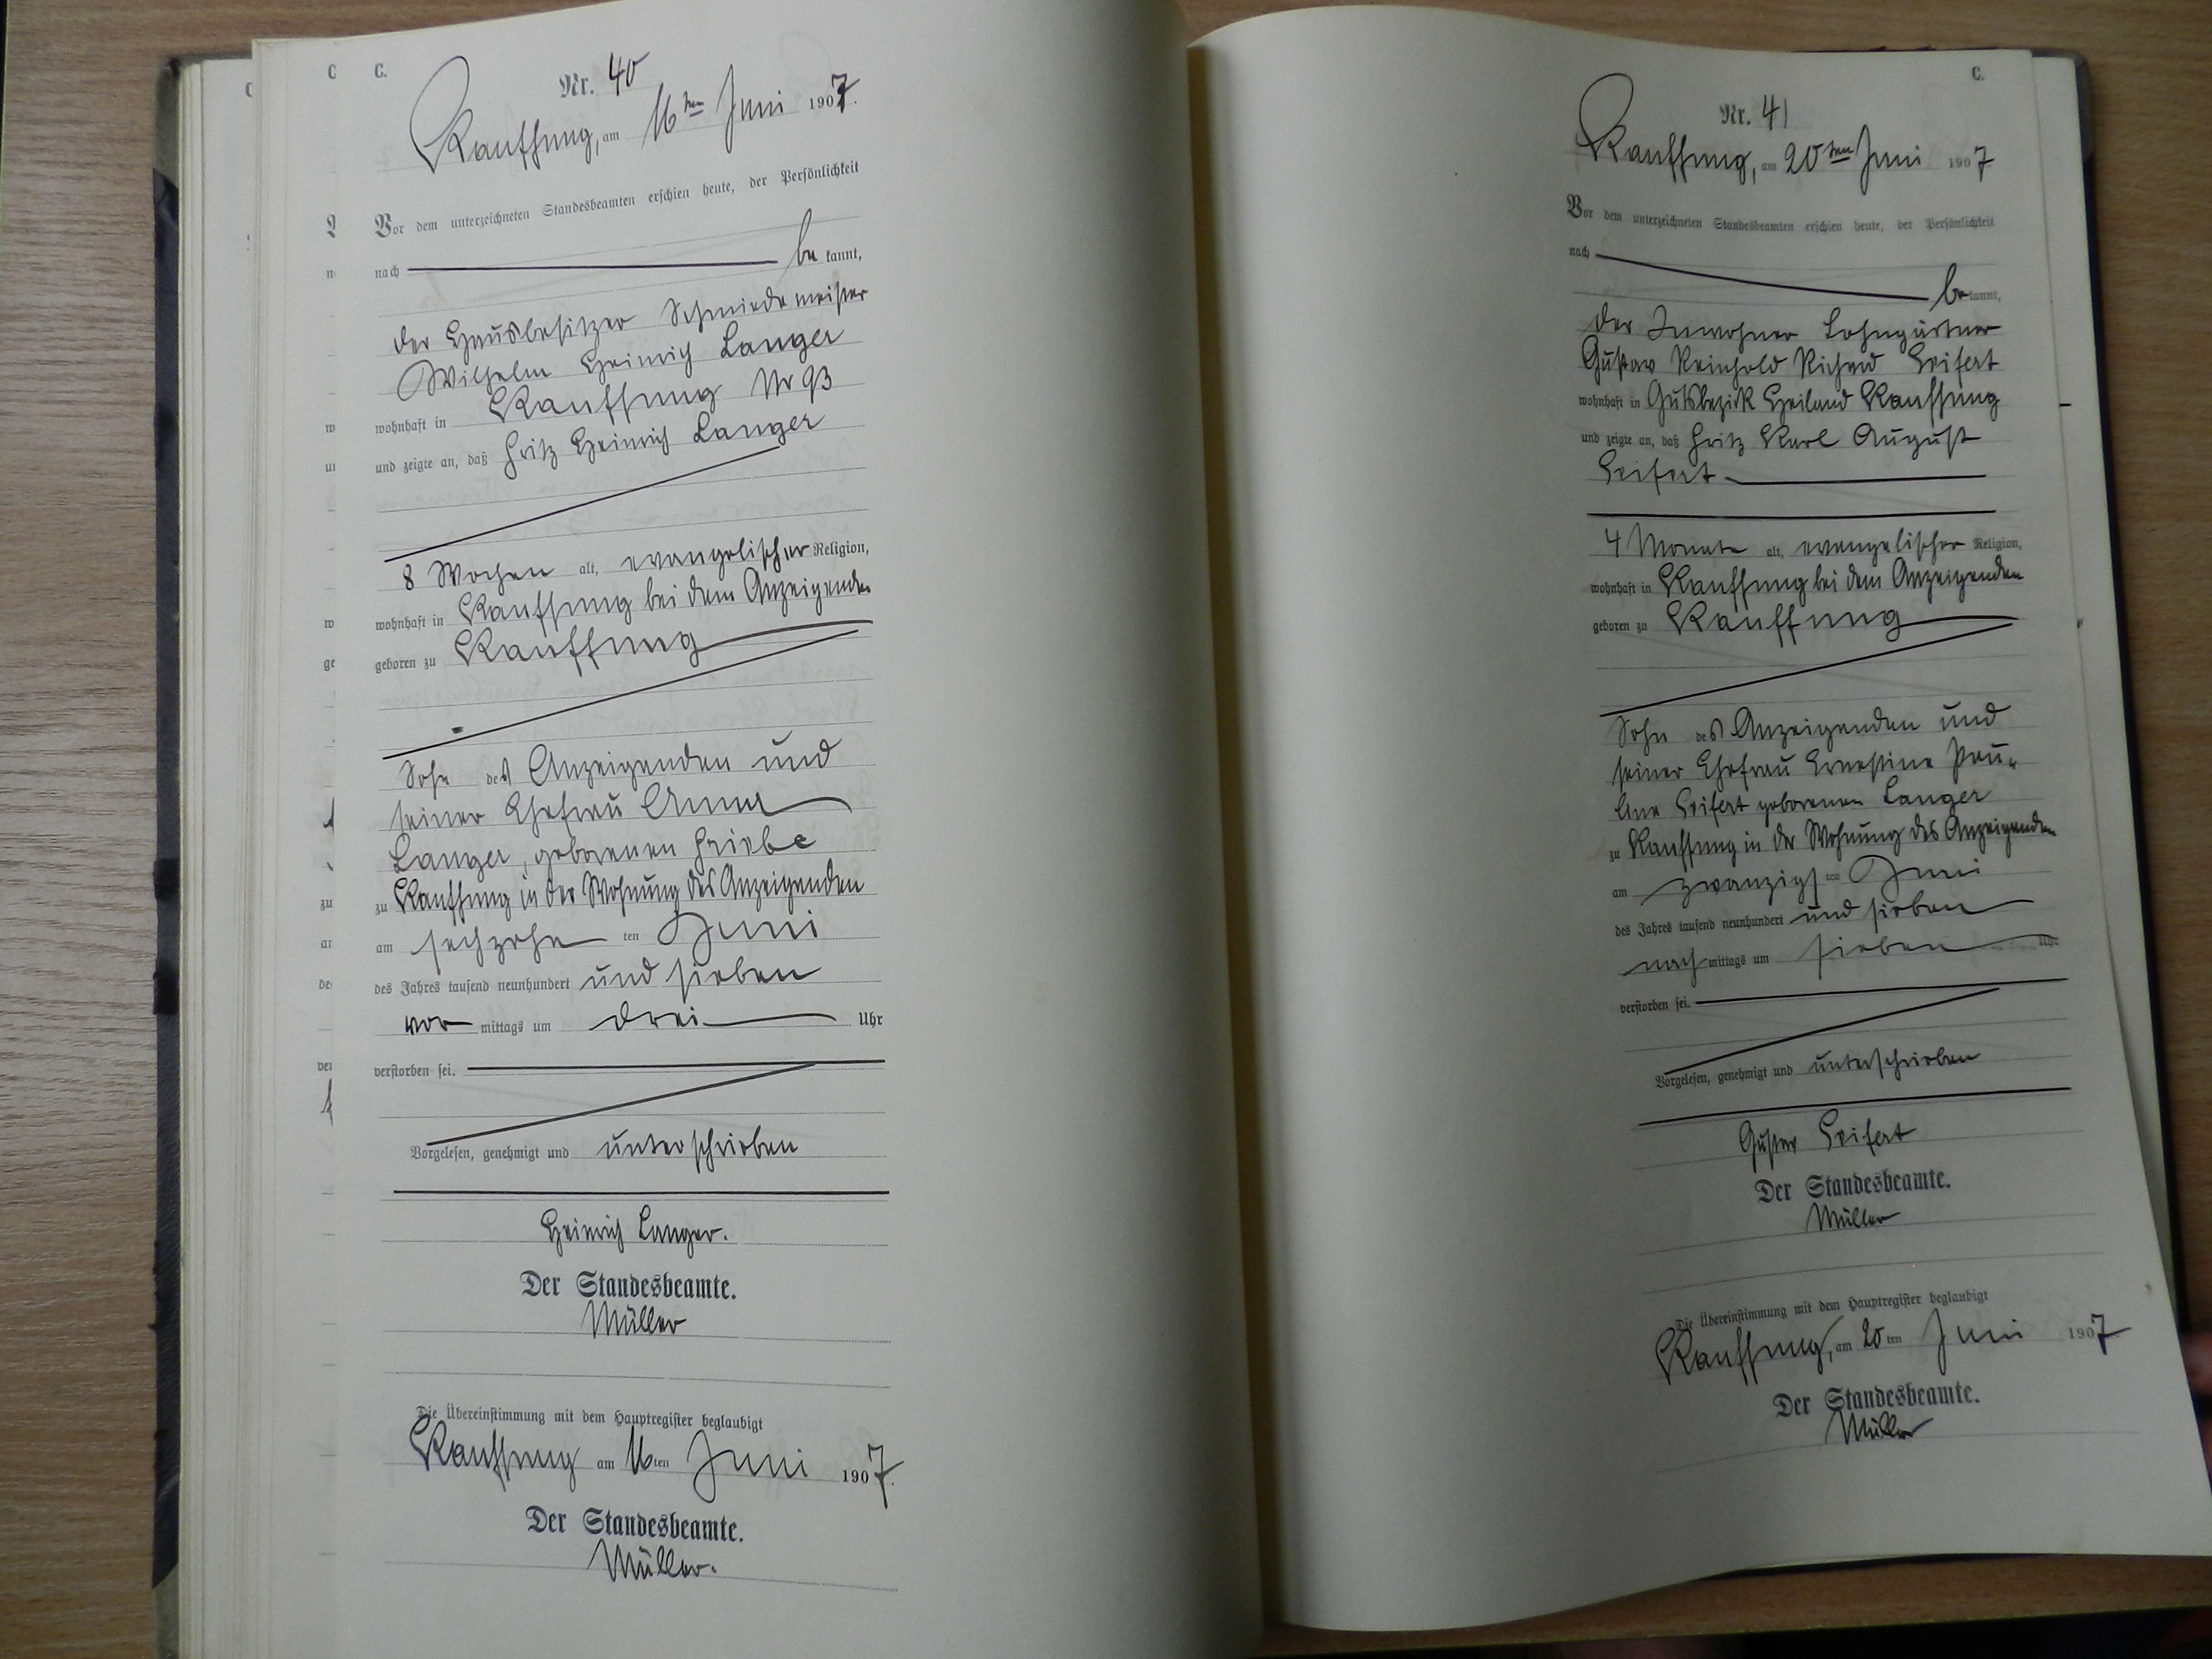 C.
Nr. 40
Kauffung, am 16ten Juni 1907.
Vor dem unterzeichneten Standesbeamten erschien heute, der Persönlichkeit
nach be kannt,
der Hausbesitzer Schmiedemeister
Wilhelm Heinrich Langer
wohnhaft in Kauffung Nr 93
und zeigte an, daß Fritz Heinrich Langer
8 Wochen alt, evangelischer Religion,
wohnhaft in Kauffung bei dem Anzeigenden
geboren zu Kauffung
Sohn des Anzeigenden und
seiner Ehefrau Anna
Langer, geborenen Friebe
zu Kauffung in der Wohnung des Anzeigenden
am sechzehn ten Juni
des Jahres tausend neunhundert und sieben
vor mittags um drei Uhr
verstorben sei.
Vorgelesen, genehmigt und unterschrieben
Heinrich Langer.
Der Standesbeamte.
Müller
Die Übereinstimmung mit dem Hauptregister beglaubigt
Kauffung am 16ten Juni 1907.
Der Standesbeamte.
Müller.
C.
Nr. 41
Kauffung, am 20ten Juni 1907
Vor dem unterzeichneten Standesbeamten erschien heute, der Persönlichkeit
nach be kannt,
der Inwohner Lohngärtner
Gustav Reinhold Richard Seifert
wohnhaft in Gutsbezirk Heiland Kauffung
und zeigte an, daß Fritz Karl August
Seifert
4 Monate alt, evangelischer Religion,
wohnhaft in Kauffung bei dem Anzeigenden
geboren zu Kauffung
Sohn des Anzeigenden und
seiner Ehefrau Ernestine Pau-
line Seifert geborenen Langer
zu Kauffung in der Wohnung des Anzeigenden
am zwanzigs ten Juni
des Jahres tausend neunhundert und sieben
nach mittags um sieben Uhr
verstorben sei.
Vorgelesen, genehmigt und unterschrieben
Gustav Seifert
Der Standesbeamte.
Müller
Die Übereinstimmung mit dem Hauptregister beglaubigt
Kauffung, am 20ten Juni 1907.
Der Standesbeamte.
Müller